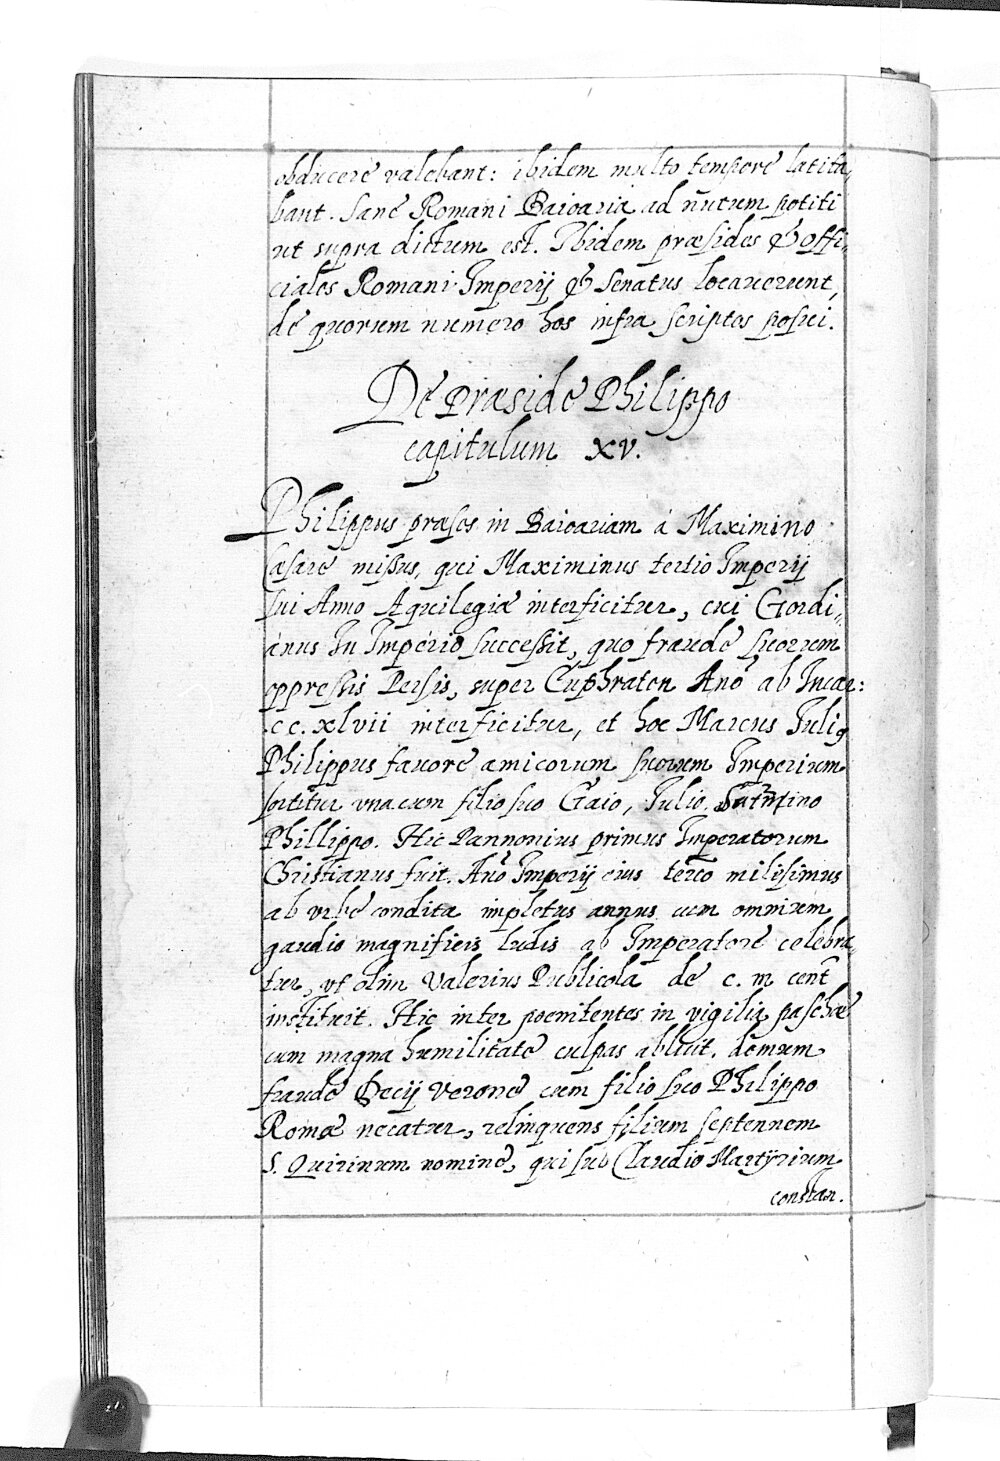 obducere valebant: ibidem multo tempore latita,
bant. Sane Romani Baioaria ad nutum potiti
ut supra dictum est. Ibidem præsides & offi,,
ciales Romani Imperij & Senatus locauerunt,
de quorum numero hos infra scriptos posui.
De Præside Philippo
capitulum xv.
Philippus præses in Baioariam á Maximino
Cæsare missus, qui Maximinus tertio Imperij
sui Anno Aquilegiæ interficitur, cui Gordi,,
anus In Imperio successit, quo fraude suorum
oppressis Persis, super Euphraten Ano ab Incar:
cc.xlvii interficitur, et hoc Marcus Iuli9
Philippus fauore amicorum suorum Imperium
sortitur vna cum filio suo Gaio, Iulio, Saturnino
Phillippo. Hic Pannonius primus Imperatorum
Christianus fuit. Ano Imperij eius terco milesimus
ab vrbe condita impletus annus cum omnium
gaudio magnificis ludis ab Imperatore celebra,
tur, vt olim Valerius Publicola de c. m cent
instituit. Hic inter poenitentes in vigilia paschæ
cum magna humilitate culpas abluit, demum
fraude Decij Verone cum filio suo Philippo
Romæ necatur, relinquens filium septennem
S. Quirinum nomine, qui sub Claudio Martÿrium
constan.